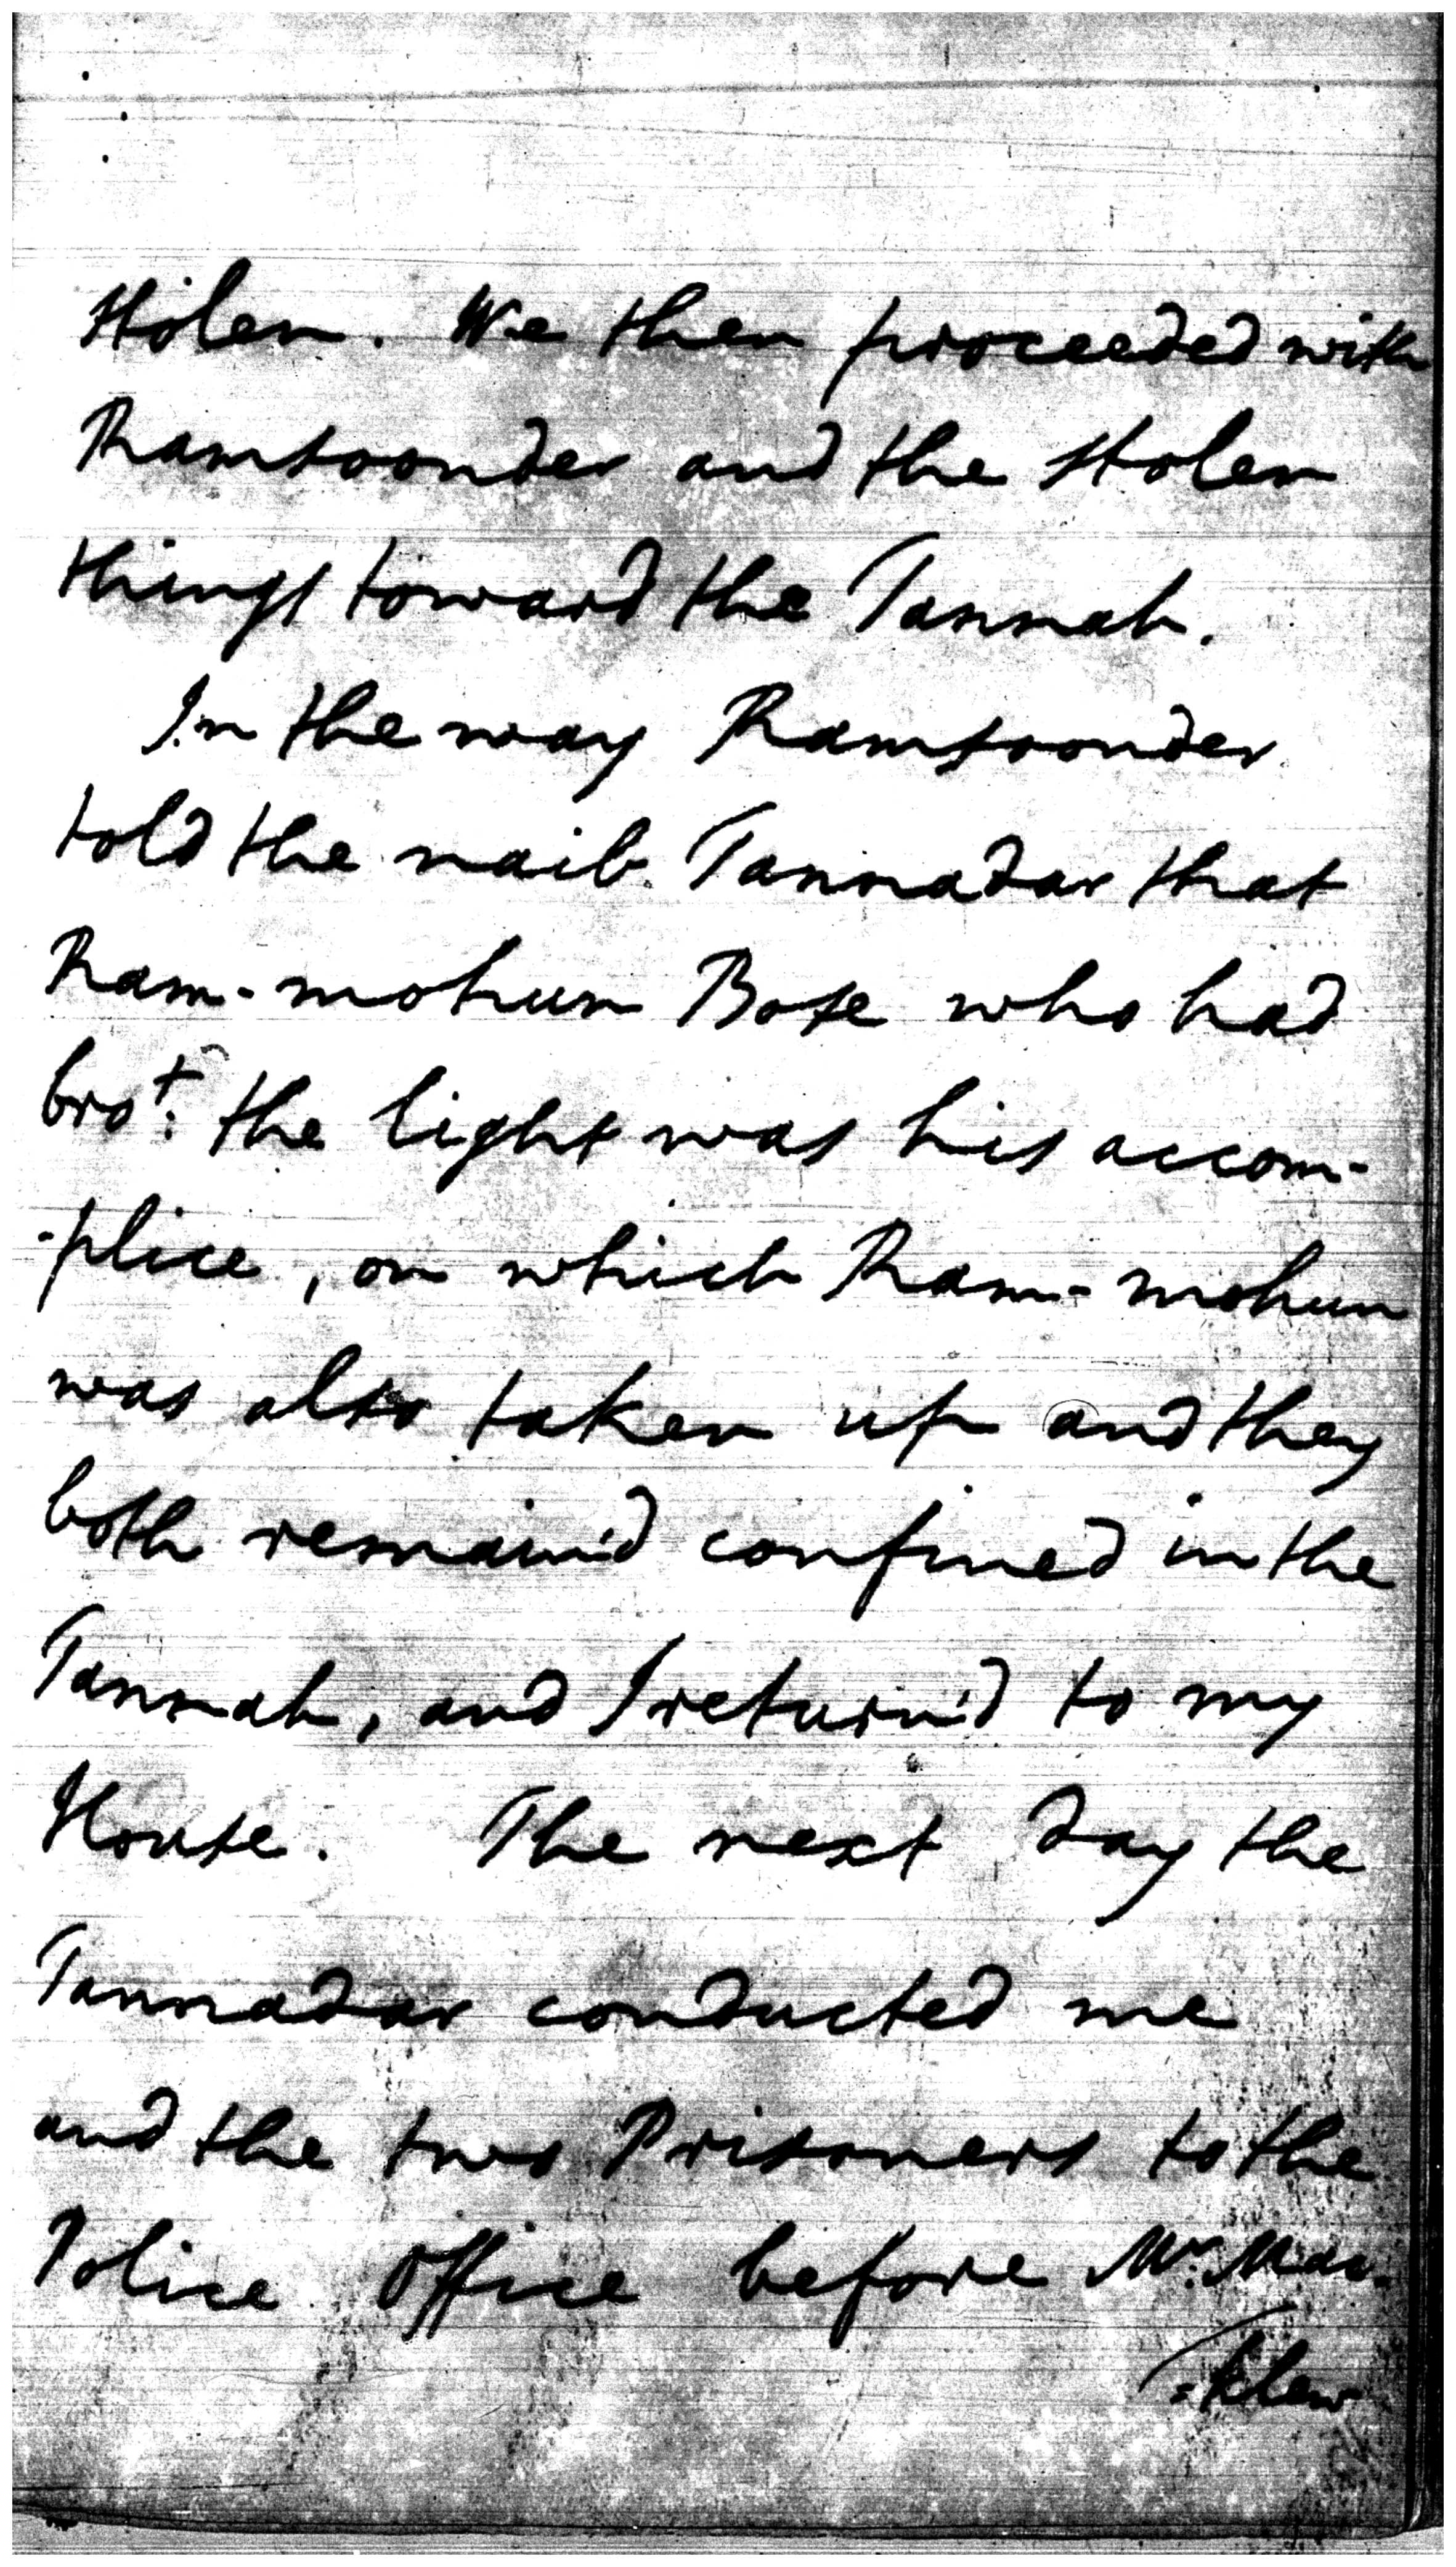 stolen. We then proceeded with
Ramsoonder and the stolen
things toward the Tannah.
In the way Ramsoonder
told the naib Tannadar that
Ram-mohun Bose who had
bro.t the light was his accom-
-plice, on which Ram-mohun
was also taken up and they
both remain'd confined in the
Tannah, and I return'd to my
House. The next day the
Tannadar conducted me
and the two Prisoners to the
Police Office before Mr.